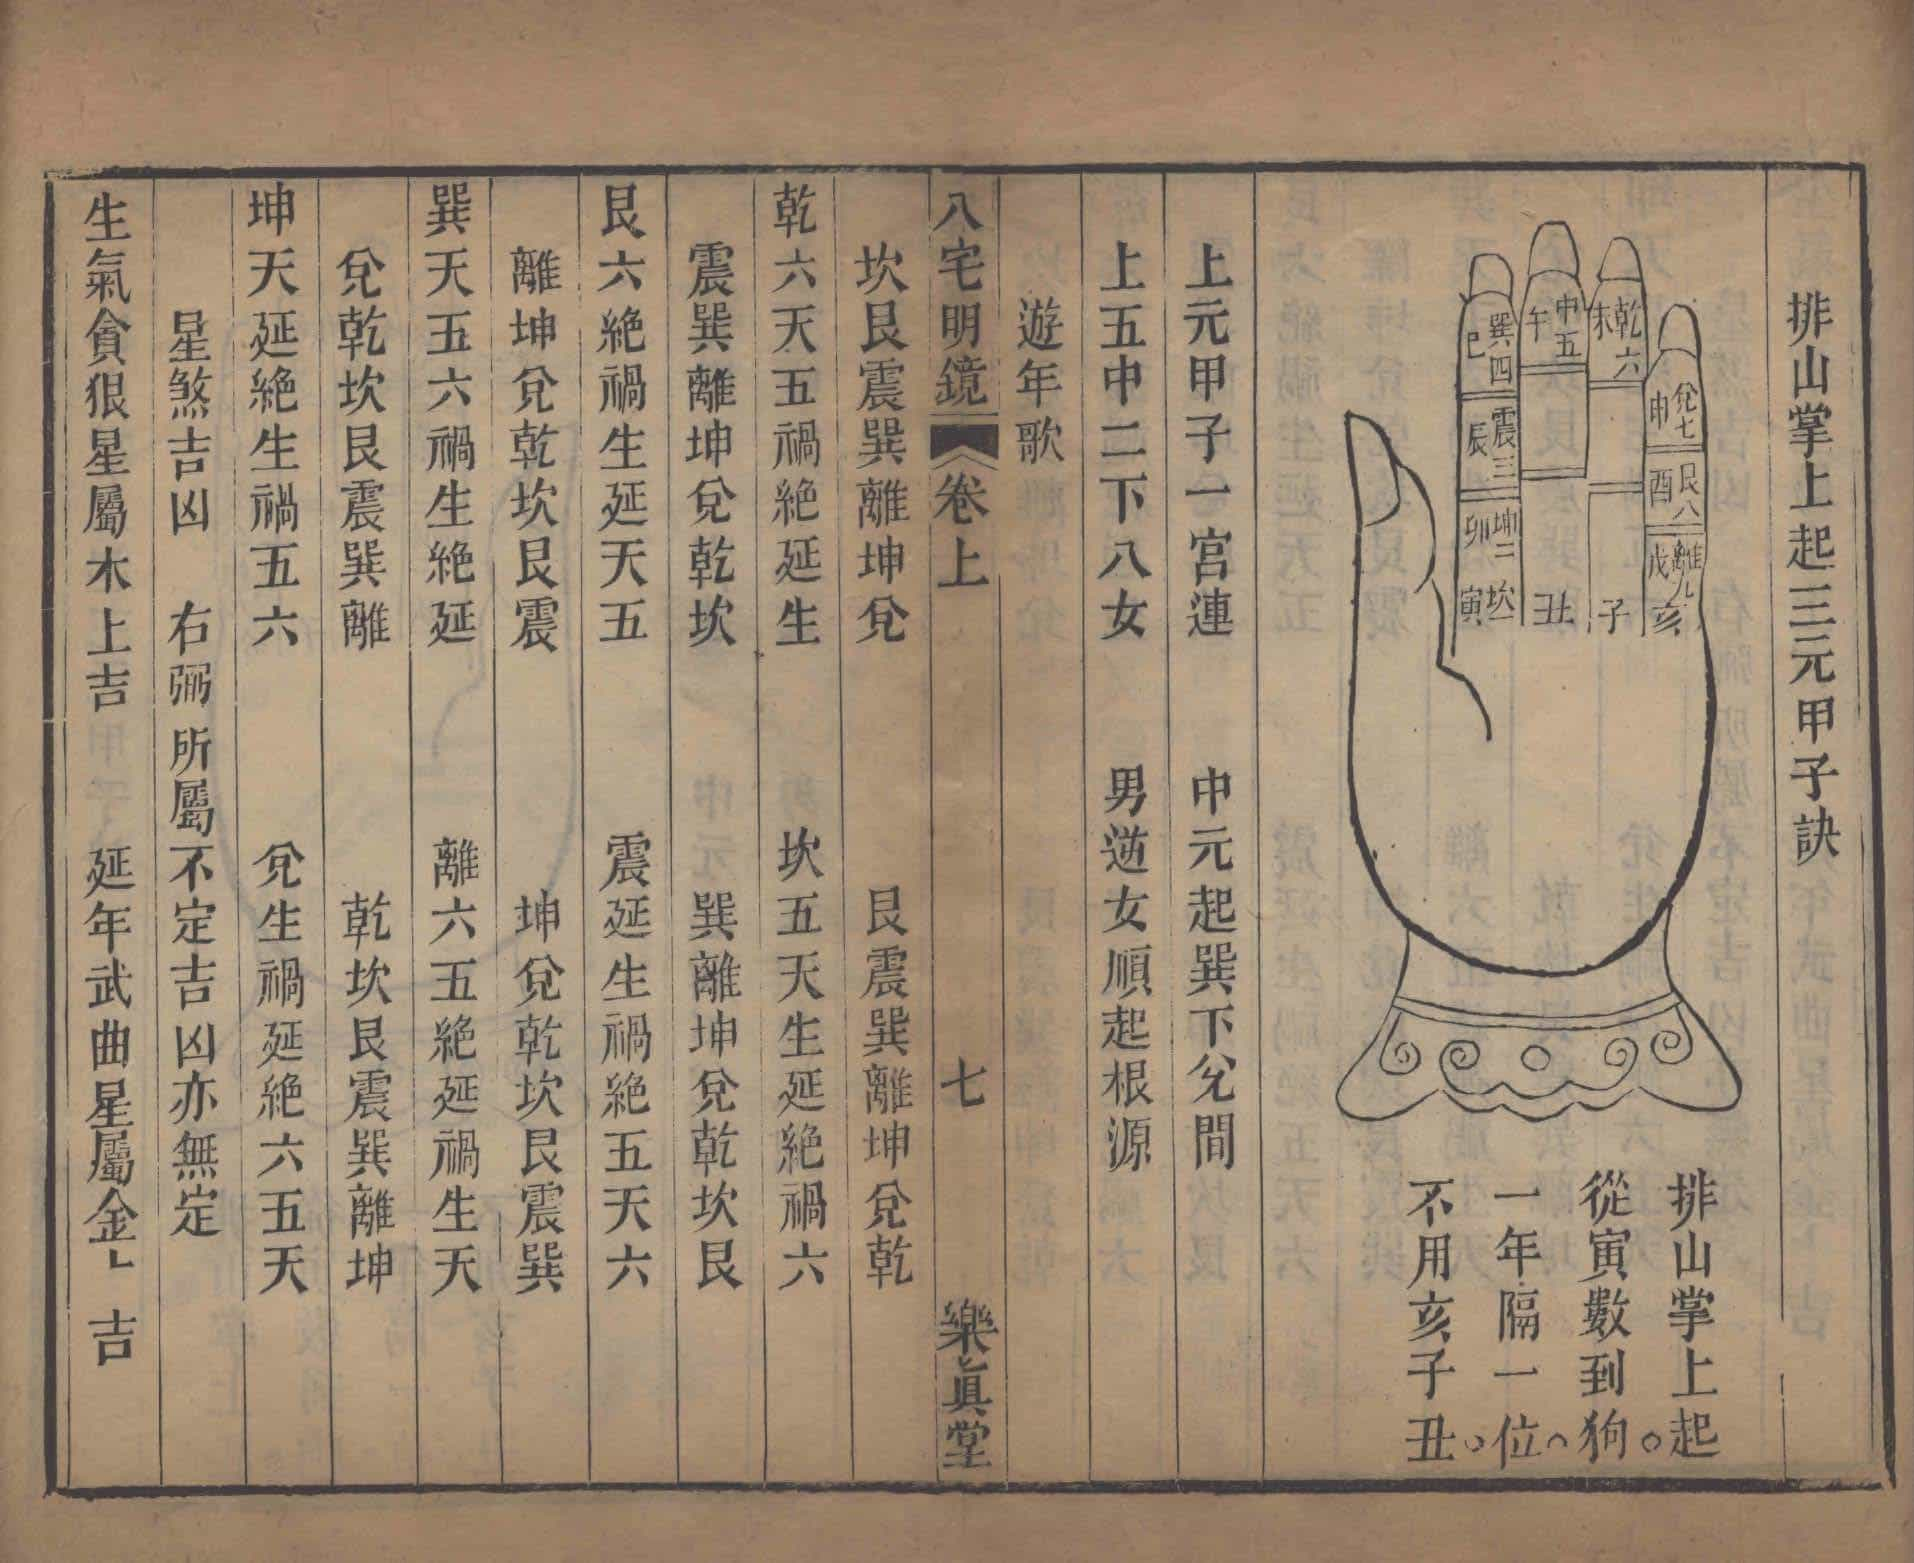 排山掌上起三元甲子訣
巽四 巳
震三 辰
坤二 卯
坎一 寅
中五 午
丑
乾六 未
子
兌七 申
艮八 酉
離九 戌
亥
排山掌上起
從寅數到狗
一年隔一位
不用亥子丑
上元甲子一宮連 中元起巽下兌間
上五中二下八女 男逆女順起根源
遊年歌
八宅明鏡 卷上 七 樂真堂
坎艮震巽離坤兌 艮震巽離坤兌乾
乾六天五禍絕延生 坎五天生延絕禍六
震巽離坤兌乾坎 巽離坤兌乾坎艮
艮六絕禍生延天五 震延生禍絕五天六
離坤兌乾坎艮震 坤兌乾坎艮震巽
巽天五六禍生絕延 離六五絕延禍生天
兌乾坎艮震巽離 乾坎艮震巽離坤
坤天延絕生禍五六 兌生禍延絕六五天
星煞吉凶 右弼所屬不定吉凶亦無定
生氣貪狼星屬木上吉 延年武曲星屬金上吉